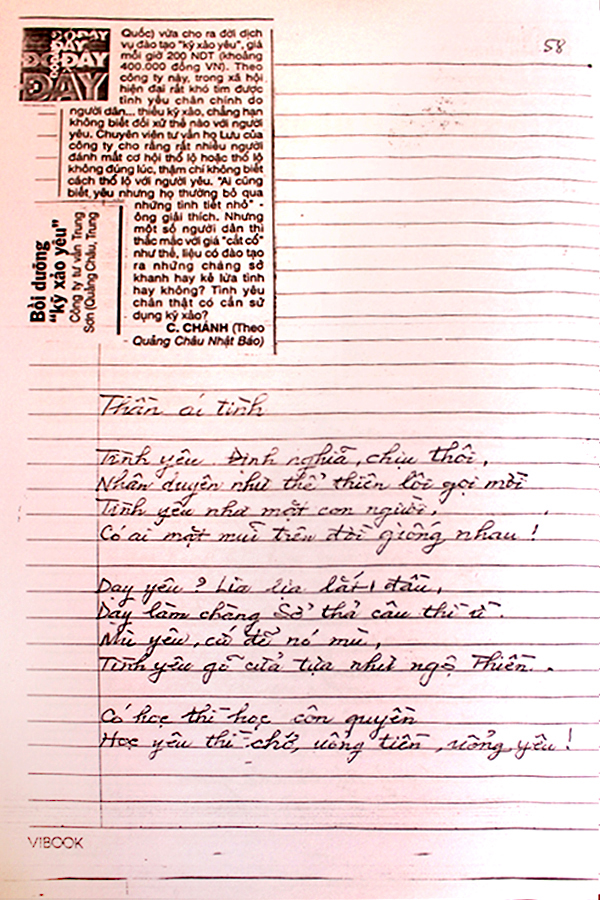 ĐÓ ĐÂY
58
Quốc) vừa cho ra đời dịch
vụ đào tạo "kỹ xảo yêu", giá
mỗi giờ 200 NDT (khoảng
400.000 đồng VN). Theo
công ty này, trong xã hội
hiện đại rất khó tìm được
tình yêu chân chính do
người dân... thiếu kỹ xảo, chẳng hạn
không biết đối xử thế nào với người
yêu. Chuyên viên tư vấn họ Lưu của
công ty cho rằng rất nhiều người
đánh mất cơ hội thổ lộ hoặc thổ lộ
không đúng lúc, thậm chí không biết
cách thổ lộ với người yêu. "Ai cũng
biết yêu nhưng họ thường bỏ qua
những tình tiết nhỏ" -
ông giải thích. Nhưng
một số người dân thì
thắc mắc với giá "cắt cổ"
như thế, liệu có đào tạo
ra những chàng sở
khanh hay kẻ lừa tình
hay không? Tình yêu
chân thật có cần sử
dụng kỹ xảo?
C. CHÁNH (Theo
Quảng Châu Nhật Báo)
Bồi dưỡng
"kỹ xảo yêu"
Công ty tư vấn Trung
Sơn (Quảng Châu, Trung
Thần ái tình
Tình yêu. Định nghĩa, chịu thôi,
Nhân duyên như thể thiên lôi gọi mời
Tình yêu như mặt con người,
Có ai mặt mũi trên đời giống nhau!
Dạy yêu? Lia lịa lắc đầu,
Dạy làm chàng Sở thả câu thì ừ.
Mù yêu, cứ để nó mù,
Tình yêu gõ cửa tựa như ngộ Thiền.
Có học thì học côn quyền
Học yêu thì chớ, uổng tiền, uổng yêu!
VIBOOK